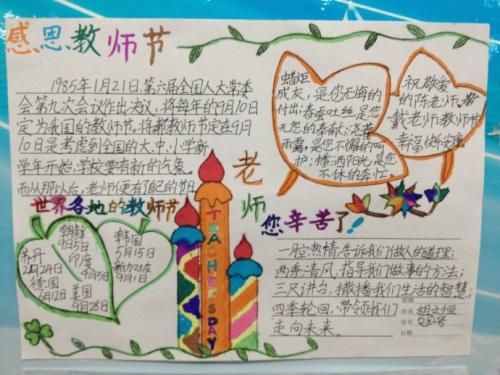 感恩教师节
1985年1月21日,第六届全国人大常委
会第九次会议作出决议,将每年的9月10日
定为我国的教师节。将教师节定在9月
10日是考虑到全国的大、中、小学新
学年开始,学校要有新的气象。
而从那以后,老师便有了自己的节日
蜡炬
成灰,是您无悔的
付出;春蚕吐丝是您
无怨的奉献;
雨露,是您不倦的呵
护;播洒阳光,是您
不休的
祝敬爱
的陈老师、戴
戴老师教师节
幸福快乐
世界各地的教师节
朝鲜
9月5日
印度
9月5日
苏丹
2月24日
德国
6月12日
美国
9月28日
韩国
5月15日
新加坡
9月1日
老师
您辛苦了!
TEACHER'S DAY
一腔热情,告诉我们做人的道理;
两季清风,指导我们做事的方法;
三尺讲台,撒播我们生活的智慧;
四季轮回,带领我们
走向未来。
班级
姓名
学号
日期